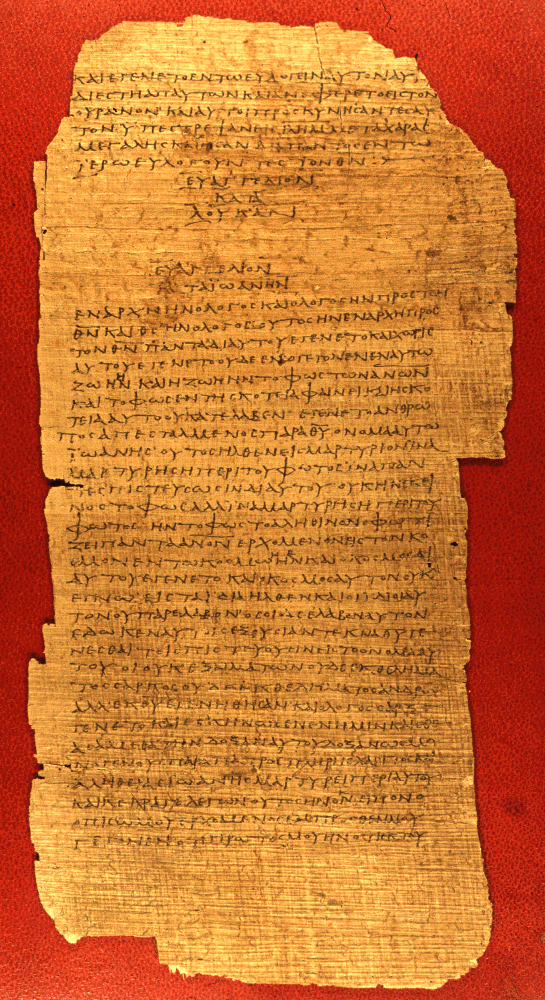 ΚΑΙΕΓΕΝΕΤΟΕΝΤΩΕΥΛΟΓΕΙΝΑΥΤΟΝΑΥΤ
ΔΙΕϹΤΗΑΠΑΥΤΩΝΚΑΙΑΝΕΦΕΡΕΤΟΕΙϹΤΟΝ
ΟΥΡΑΝΟΝ ΚΑΙΑΥΤΟΙΠΡΟϹΚΥΝΗϹΑΝΤΕϹΑΥ
ΤΟΝΥΠΕϹΤΡΕΨΑΝΕΙϹΙΕΡΗΛΜΜΕΤΑΧΑΡΑϹ
ΜΕΓΑΛΗϹΚΑΙΗϹΑΝΔΙΑΠΑΝΤΟϹΕΝΤΩ
ΪΕΡΩΕΥΛΟΓΟΥΝΤΕϹΤΟΝΘΝ
ΕΥΑΓΓΕΛΙΟΝ
ΚΑΤΑ
ΛΟΥΚΑΝ
ΕΥΑΓΓΕΛΙΟΝ
ΚΑΤΑΙΩΑΝΗΝ
ΕΝΑΡΧΗΗΝΟΛΟΓΟϹΚΑΙΟΛΟΓΟϹΗΝΠΡΟϹΤΟΝ
ΘΝΚΑΙΘϹΗΝΟΛΟΓΟϹΟΥΤΟϹΗΝΕΝΑΡΧΗΠΡΟϹ
ΤΟΝΘΝ ΠΑΝΤΑΔΙΑΥΤΟΥΕΓΕΝΕΤΟΚΑΙΧΩΡΙϹ
ΑΥΤΟΥΕΓΕΝΕΤΟΟΥΔΕΕΝΟΓΕΓΟΝΕΝΕΝΑΥΤΩ
ΖΩΗΗΝΚΑΙΗΖΩΗΗΝΤΟΦΩϹΤΩΝΑΝΩΝ
ΚΑΙΤΟΦΩϹΕΝΤΗϹΚΟΤΕΙΑΦΑΙΝΕΙΚΑΙΗϹΚΟ
ΤΕΙΑΑΥΤΟΟΥΚΑΤΕΛΑΒΕΝ ΕΓΕΝΕΤΟΑΝΘΡΩ
ΠΟϹΑΠΕϹΤΑΛΜΕΝΟϹΠΑΡΑΘΥ ΟΝΟΜΑΑΥΤΩ
ΪΩΑΝΗϹ ΟΥΤΟϹΗΛΘΕΝΕΙϹΜΑΡΤΥΡΙΟΝΙΝΑ
ΜΑΡΤΥΡΗϹΗΠΕΡΙΤΟΥΦΩΤΟϹΪΝΑΠΑΝ
ΤΕϹΠΙϹΤΕΥϹΩϹΙΝΔΙΑΥΤΟΥ ΟΥΚΗΝΕΚΕΙ
ΝΟϹΤΟΦΩϹΑΛΛΙΝΑΜΑΡΤΥΡΗϹΗΠΕΡΙΤΟΥ
ΦΩΤΟϹ ΗΝΤΟΦΩϹΤΟΑΛΗΘΙΝΟΝΟΦΩΤΙ
ΖΕΙΠΑΝΤΑΑΝΟΝ ΕΡΧΟΜΕΝΟΝΕΙϹΤΟΝΚΟ
ϹΜΟΝΕΝΤΩΚΟϹΜΩΗΝΚΑΙΟΚΟϹΜΟϹΔΙ
ΑΥΤΟΥΕΓΕΝΕΤΟ ΚΑΙΟΚΟϹΜΟϹΑΥΤΟΝΟΥΚ
ΕΓΝΩ ΕΙϹΤΑΙΔΙΑΗΛΘΕΝΚΑΙΟΙΙΔΙΟΙΑΥ
ΤΟΝΟΥΠΑΡΕΛΑΒΟΝ ΟϹΟΙΔΕΕΛΑΒΟΝΑΥΤΟΝ
ΕΔΩΚΕΝΑΥΤΟΙϹΕΞΟΥϹΙΑΝΤΕΚΝΑΘΥΓΕ
ΝΕϹΘΑΙ ΤΟΙϹΠΙϹΤΕΥΟΥϹΙΝΕΙϹΤΟΟΝΟΜΑΑΥ
ΤΟΥ ΟΙΟΥΚΕΞΑΙΜΑΤΩΝΟΥΔΕΕΚΘΕΛΗΜΑ
ΤΟϹϹΑΡΚΟϹΟΥΔΕΕΚΘΕΛΗΜΑΤΟϹΑΝΔΡΟϹ
ΑΛΛΕΚΘΥΕΓΕΝΗΘΗϹΑΝ ΚΑΙΟΛΟΓΟϹϹΑΡΞΕ
ΓΕΝΕΤΟΚΑΙΕϹΚΗΝΩϹΕΝΕΝΗΜΙΝΚΑΙΕΘΕ
ΑϹΑΜΕΘΑΤΗΝΔΟΞΑΝΑΥΤΟΥΔΟΞΑΝΩϹΜΟ
ΝΟΓΕΝΟΥϹΠΑΡΑΠΑΤΡΟϹΠΛΗΡΗϹΧΑΡΙΤΟϹΚΑΙ
ΑΛΗΘΕΙΑϹΙΩΑΝΗϹΜΑΡΤΥΡΕΙΠΕΡΙΑΥΤΟΥ
ΚΑΙΚΕΚΡΑΓΕΛΕΓΩΝΟΥΤΟϹΗΝΟΝ ΕΙΠΟΝΟ
ΟΠΕΙϹΩΜΟΥΕΡΧΟΜΕΝΟϹΕΜΠΡΟϹΘΕΝΜΟΥ
ΓΕΓΟΝΕΝΟΤΙΠΡΩΤΟϹΜΟΥΗΝΟΤΙΕΚΤΟΥ